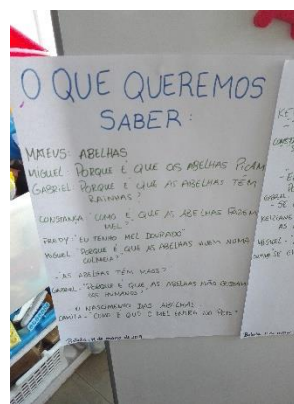 O QUE QUEREMOS
SABER:
MATEUS: ABELHAS
MIGUEL: PORQUE É QUE OS ABELHAS PICAM
GABRIEL: PORQUE É QUE AS ABELHAS TÊM
RAINHAS?
CONSTANÇA: "COMO É QUE AS ABELHAS FAZEM
MEL?"
"EU TENHO MEL DOURADO"
MIGUEL: PORQUE É QUE AS ABELHAS VIVEM NUMA
COLMEIA?"
- AS ABELHAS TÊM
GABRIEL: "PORQUE É QUE AS ABELHAS NÃO
OS HUMANOS?"
O NASCIMENTO DAS ABELHAS
CAMILA: "COMO É QUE O MEL ENTRA NO POTE"